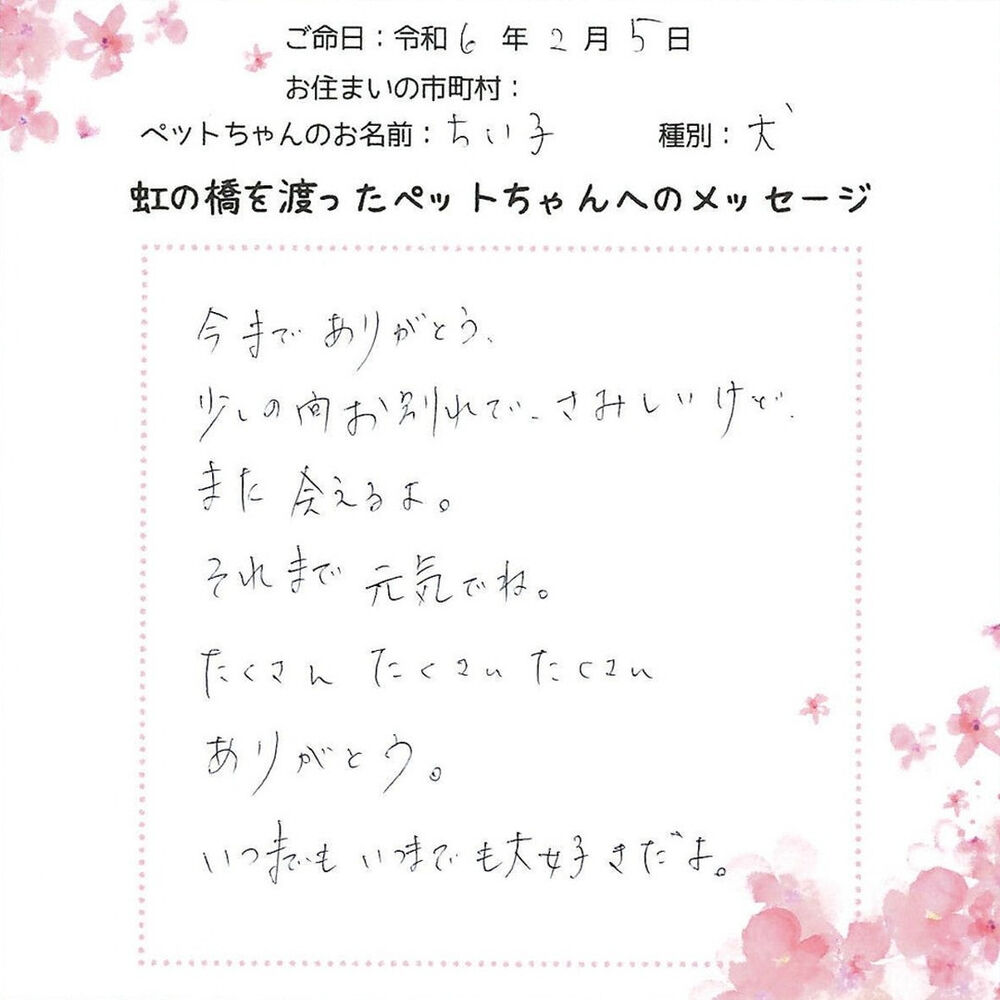 ご命日：令和6年2月5日
お住まいの市町村：
ペットちゃんのお名前：ちい子 種別：犬
虹の橋を渡ったペットちゃんへのメッセージ
今までありがとう、
少しの間お別れで、さみしいけど、
また会えるよ。
それまで元気でね。
たくさんたくさんたくさん
ありがとう。
いつまでもいつまでも大好きだよ。